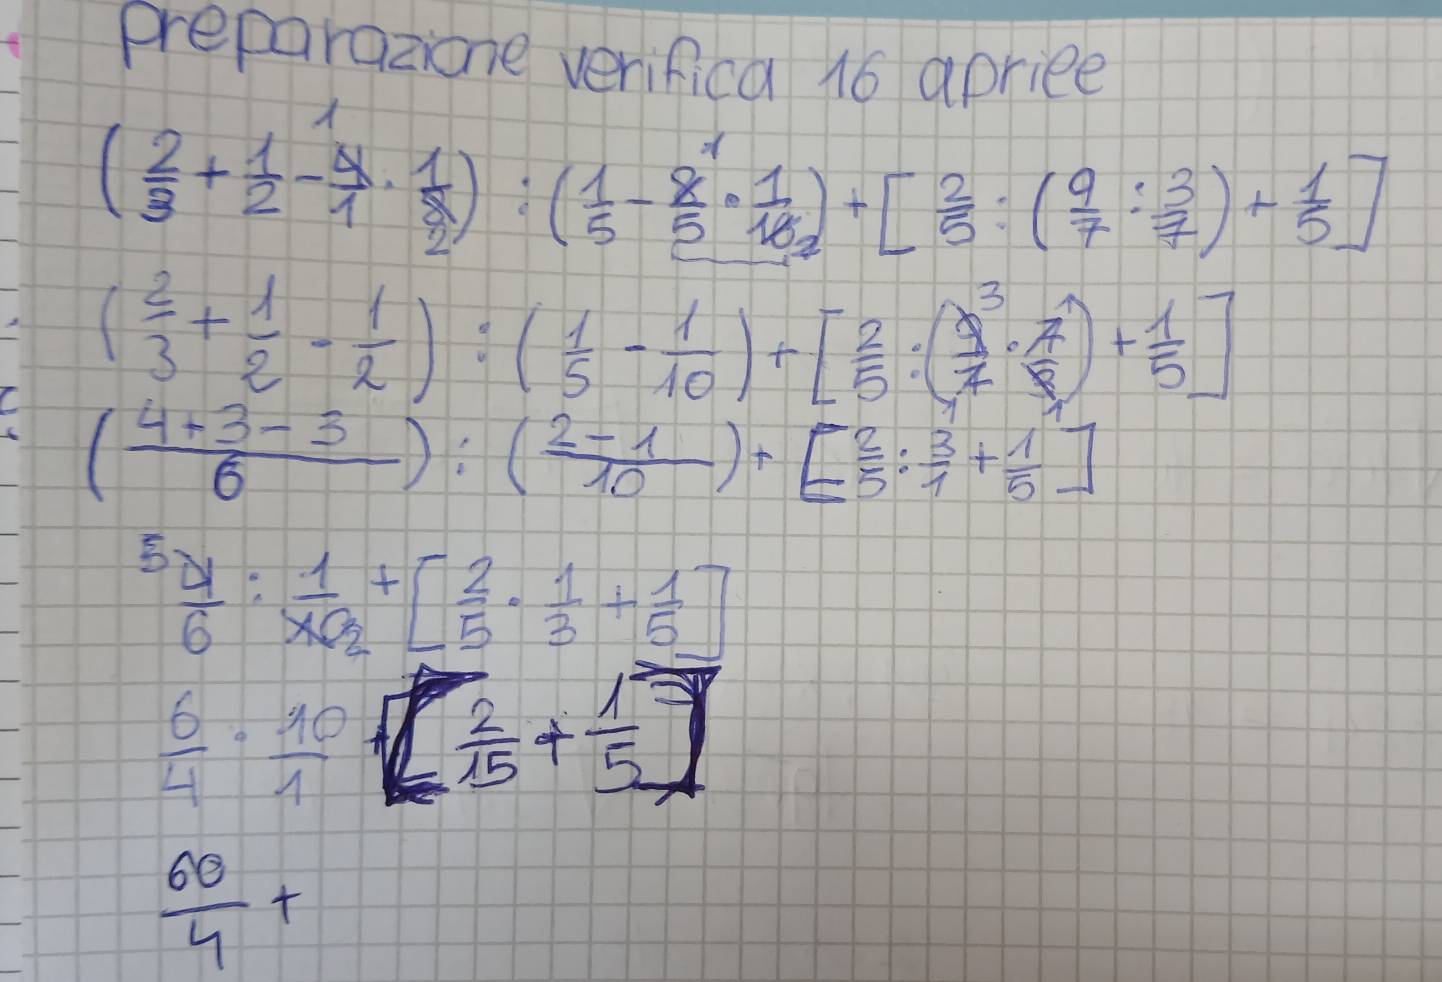 preparazione verifica 16 aprile
1 1
(2/3 + 1/2 - 4/1 · 1/8 2) : (1/5 - 2/5 · 1/10 2) + [2/5 : (9/7 : 3/7) + 1/5]
(2/3 + 1/2 - 1/2) : (1/5 - 1/10) + [2/5 : (9/7 3 1 · 7/3 1 1) + 1/5]
((4+3-3)/6) : ((2-1)/10) + [2/5 : 3/1 + 1/5]
5 4/6 : 1/10 2 + [2/5 · 1/3 + 1/5]
6/4 · 10/1 + [2/15 + 1/5]
60/4 +